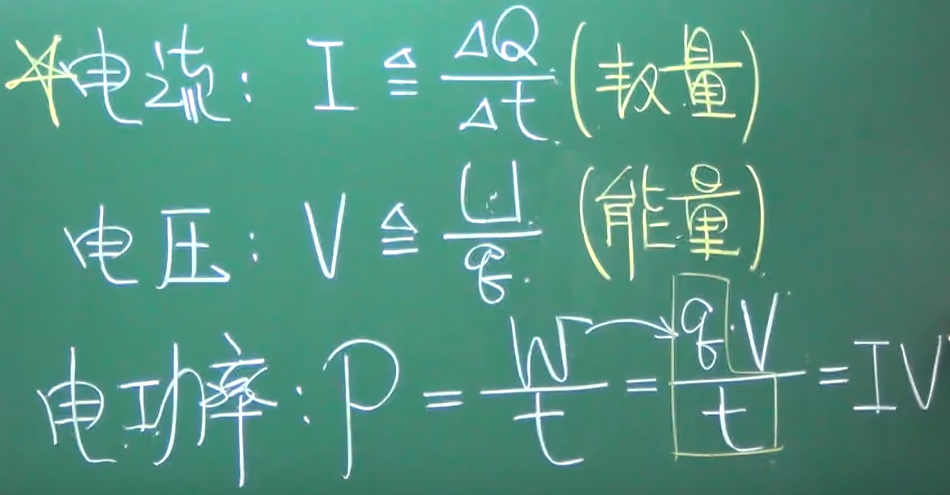 ☆电流: I ≜ ΔQ/Δt (数量)
电压: V ≜ U/q (能量)
电功率: P = W/t = q·V/t = IV